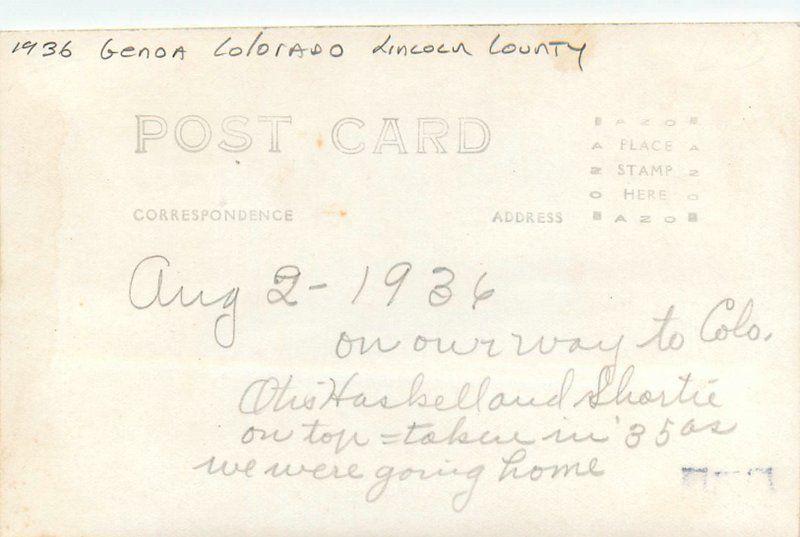 1936 Genoa Colorado Lincoln County
POST CARD
AZO
A PLACE A
Z STAMP Z
O HERE O
AZO
CORRESPONDENCE ADDRESS
Aug 2 - 1936
on our way to Colo.
Otis Haskell and Shortie
on top = taken in '35 as
we were going home